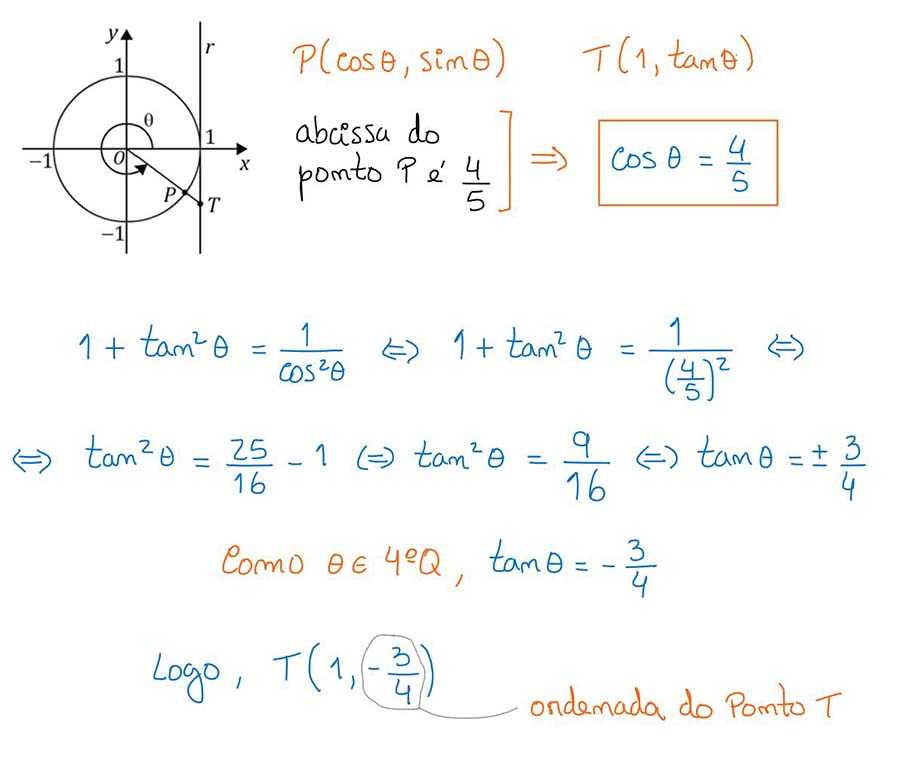 y
r
1
θ
1
-1
O
x
P
T
-1
P(cosθ, sinθ)
T(1, tanθ)
abcissa do
ponto P é 4/5
⇒ cos θ = 4/5
1 + tan²θ = 1/cos²θ ⇔ 1 + tan²θ = 1/(4/5)² ⇔
⇔ tan²θ = 25/16 - 1 ⇔ tan²θ = 9/16 ⇔ tanθ = ± 3/4
Como θ ∈ 4ºQ, tanθ = - 3/4
Logo, T(1, -3/4)
ordenada do Ponto T